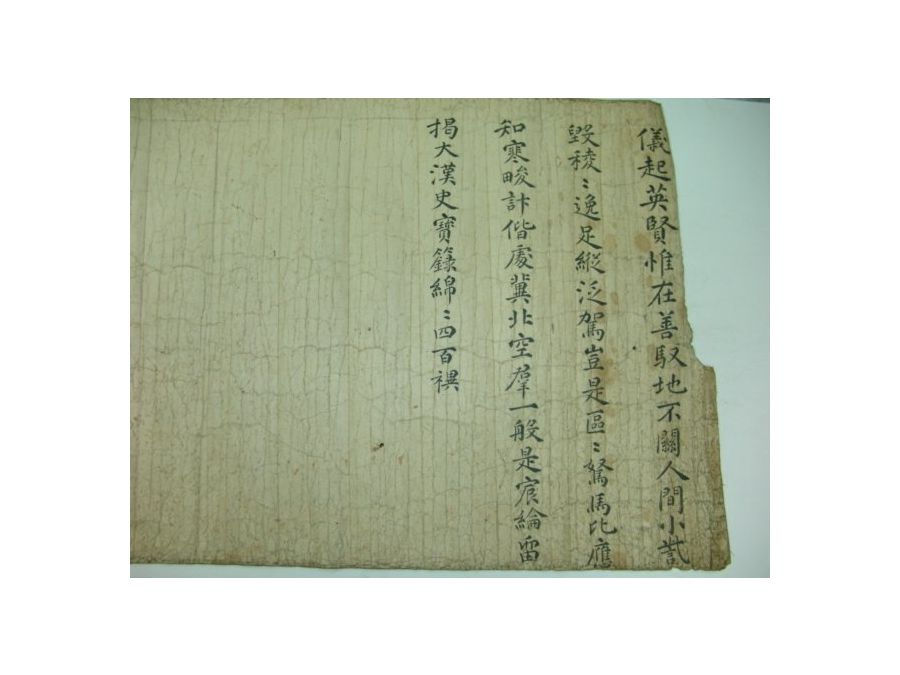 儀起英賢惟在善馭地不關人間小訾
毀稜〻逸足縱泛駕豈是區〻駑馬比應
知寒畯計偕處冀北空群一般是宸綸留
揭大漢史寶籙綿〻四百禩